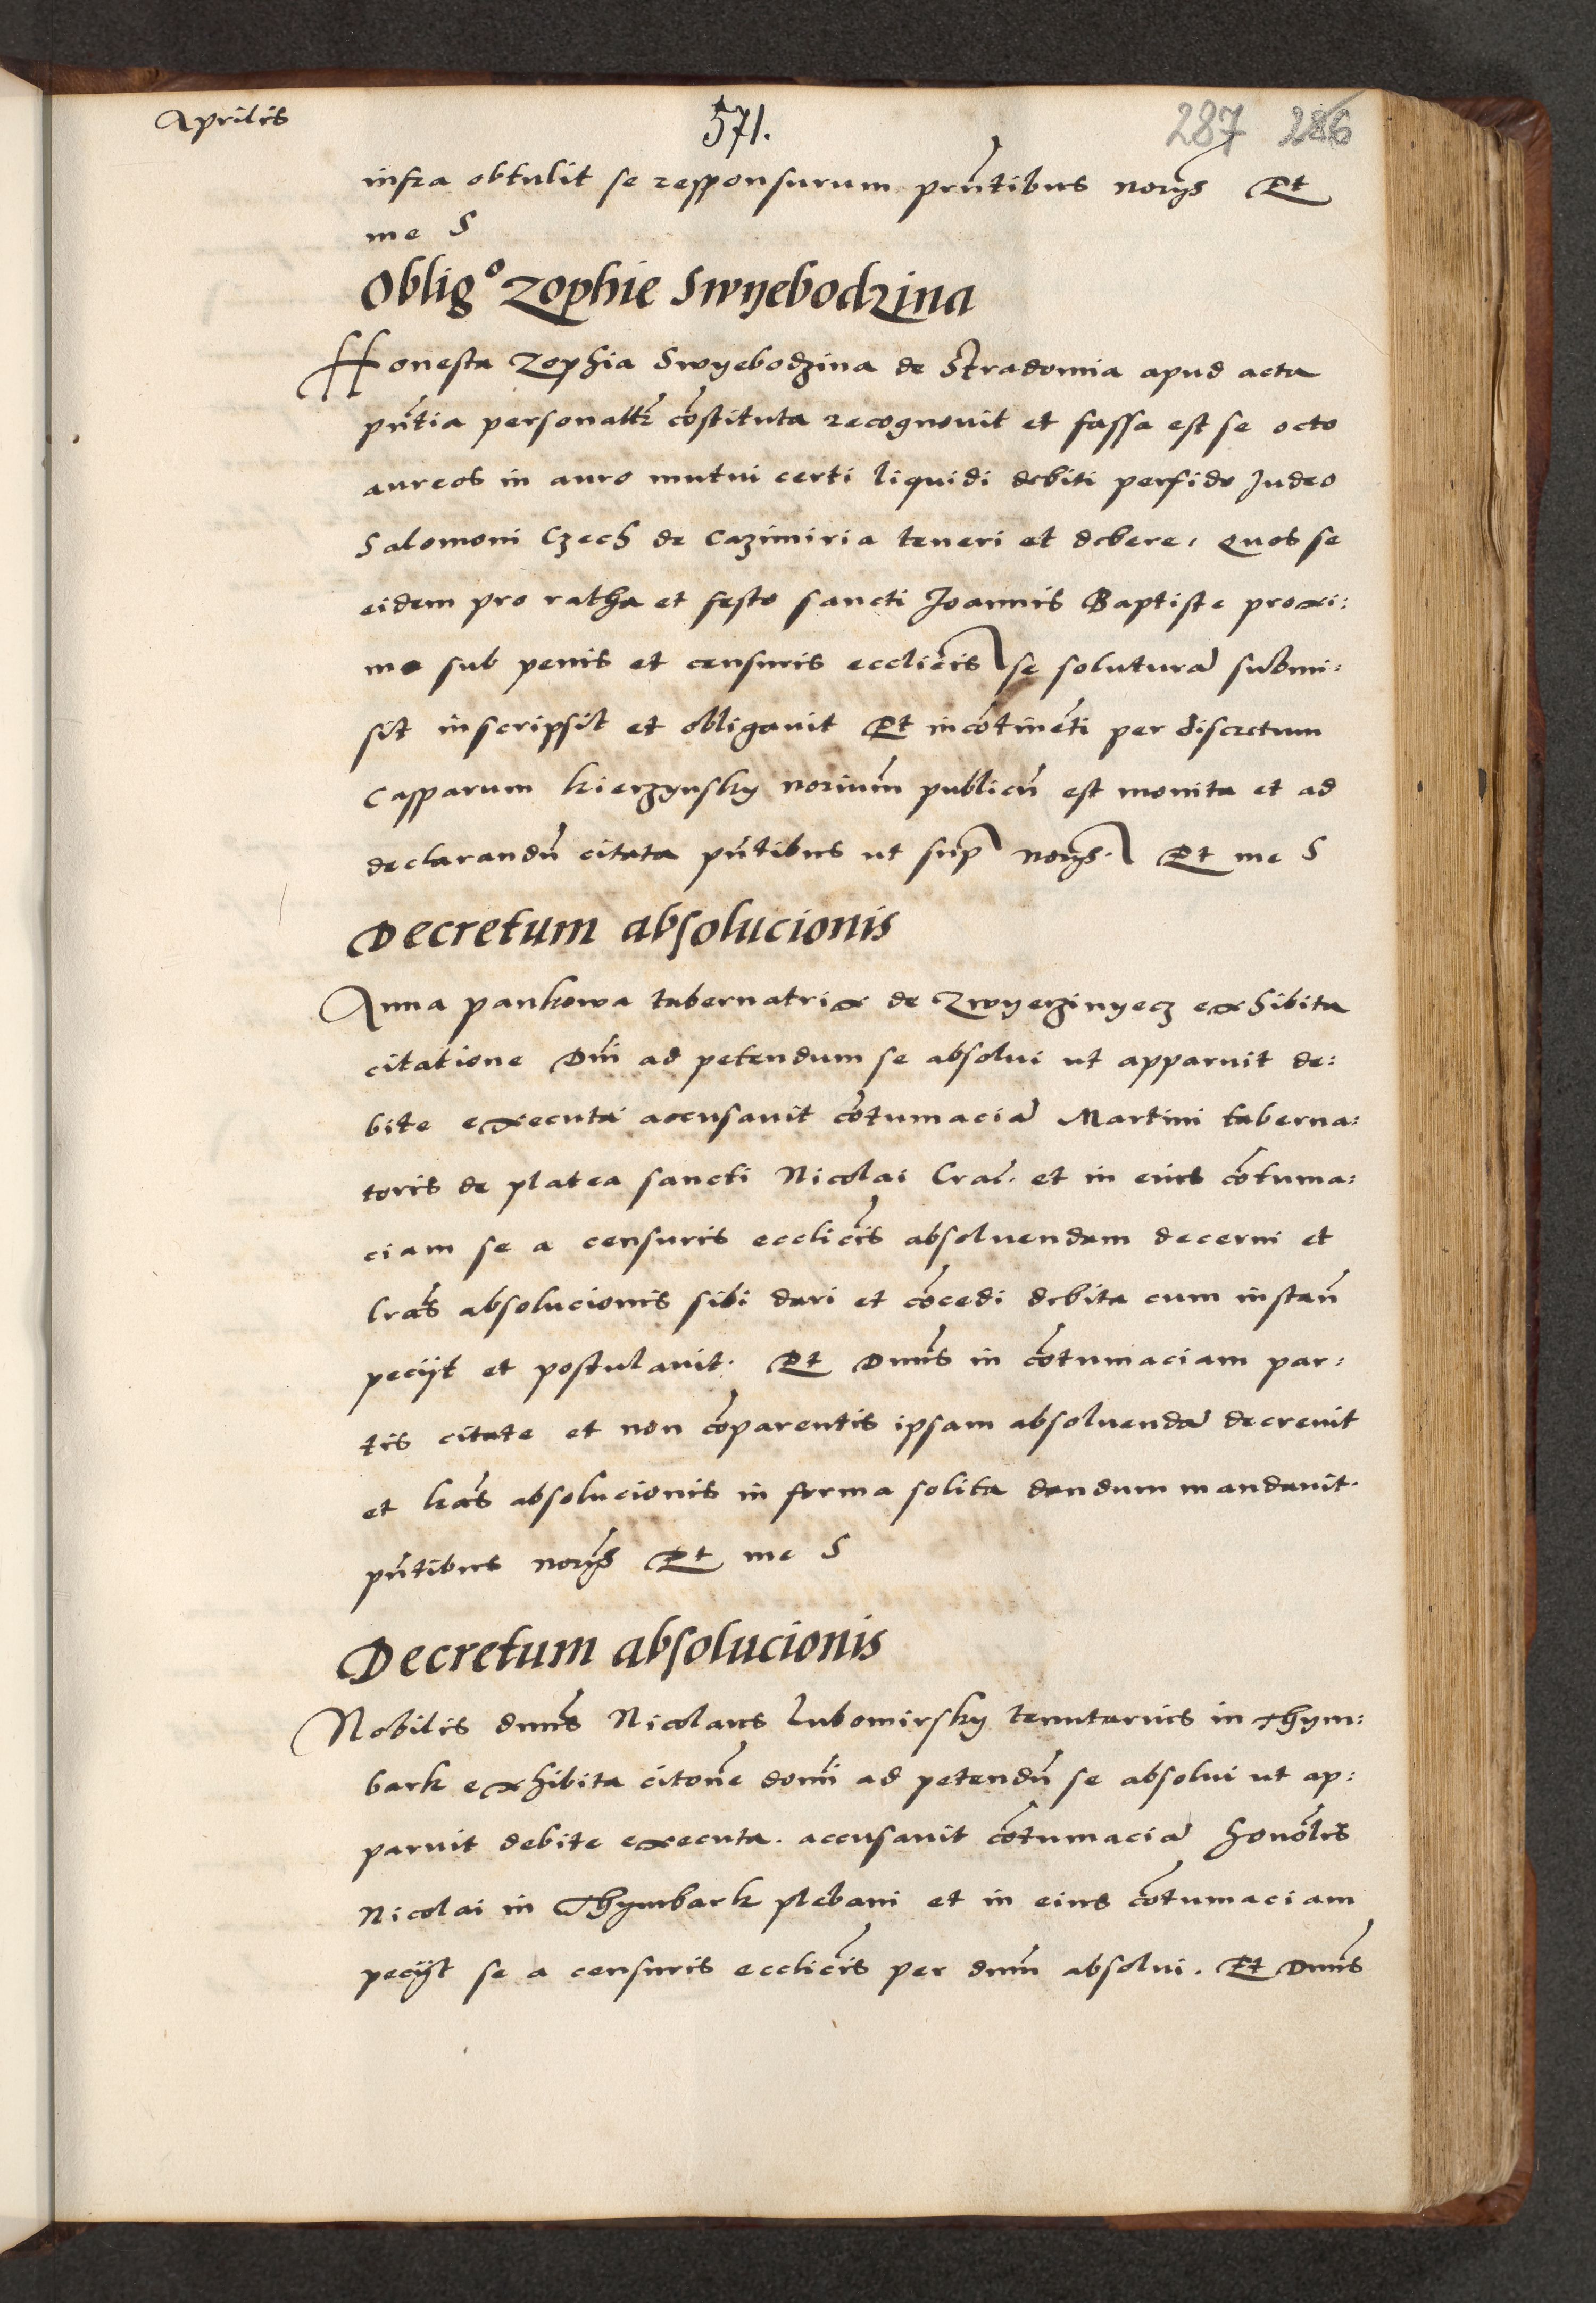 Aprilis
571.
287 286
infra obtulit se responsurum prñtibus norÿs Et
me S
Oblig° Zophie Swyebodzina
Honesta Zophia Swyebodzina de Stradomia apud acta
pñtia personaltr cõstituta recognouit et fassa est se octo
aureos in auro mutui certi liquidi debiti perfido Judeo
Salomoni Czech de Cazimiria teneri et debere, quos se
eidem pro ratha et festo sancti Joannis Baptiste proxi:
mo sub penis et censuris ecclicis se soluturã submi:
sit inscripsit et obligauit Et incõtinẽti per discretum
Casparum kierzynsky noriũm publicũ est monita et ad
declarandũ citata pñtibus ut sup norÿs. Et me S
Decretum absolucionis
Anna pankowa tabernatrix de Zwyerzinyecz exhibita
citatione Dñi ad petendum se absolui ut apparuit de:
bite executa accusauit cõtumaciã Martini taberna:
toris de platea sancti Nicolai Crac. et in eius cõtuma:
ciam se a censuris ecclicis absoluendam decerni et
lras absolucionis sibi dari et cõcedi debita cum instañ
peciit et postulauit. Et Dnus in cõtumaciam par:
tis citate et non cõparentis ipsam absoluendã decreuit
et lras absolucionis in forma solita dandum mandauit.
pñtibus norÿs Et me S
Decretum absolucionis
Nobilis dnus Nicolaus Lubomirsky tenutarius in Thym:
bark exhibita citone domi ad petendũ se absolui ut ap:
paruit debite executa. accusauit cõtumaciã honolis
Nicolai in Thymbark plebani et in eius cõtumaciam
peciit se a censuris ecclicis per dnum absolui. Et Dnus